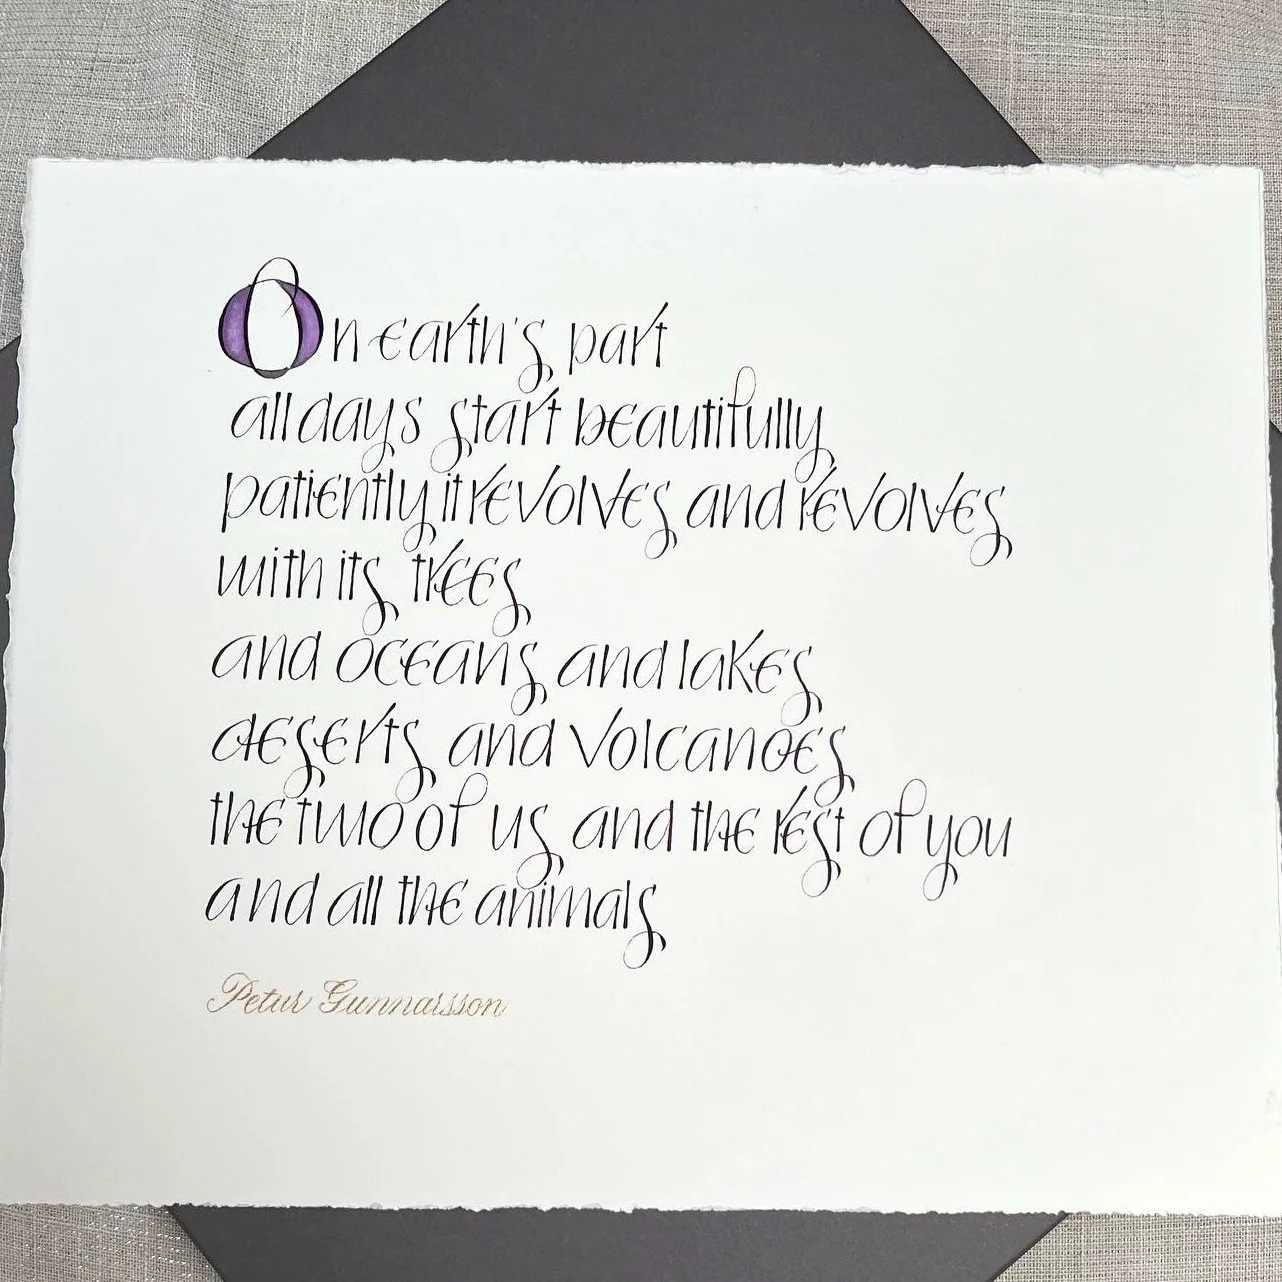 On earth's part
all days start beautifully
patiently it revolves and revolves
with its trees
and oceans and lakes
deserts and volcanoes
the two of us and the rest of you
and all the animals
Petur Gunnarsson